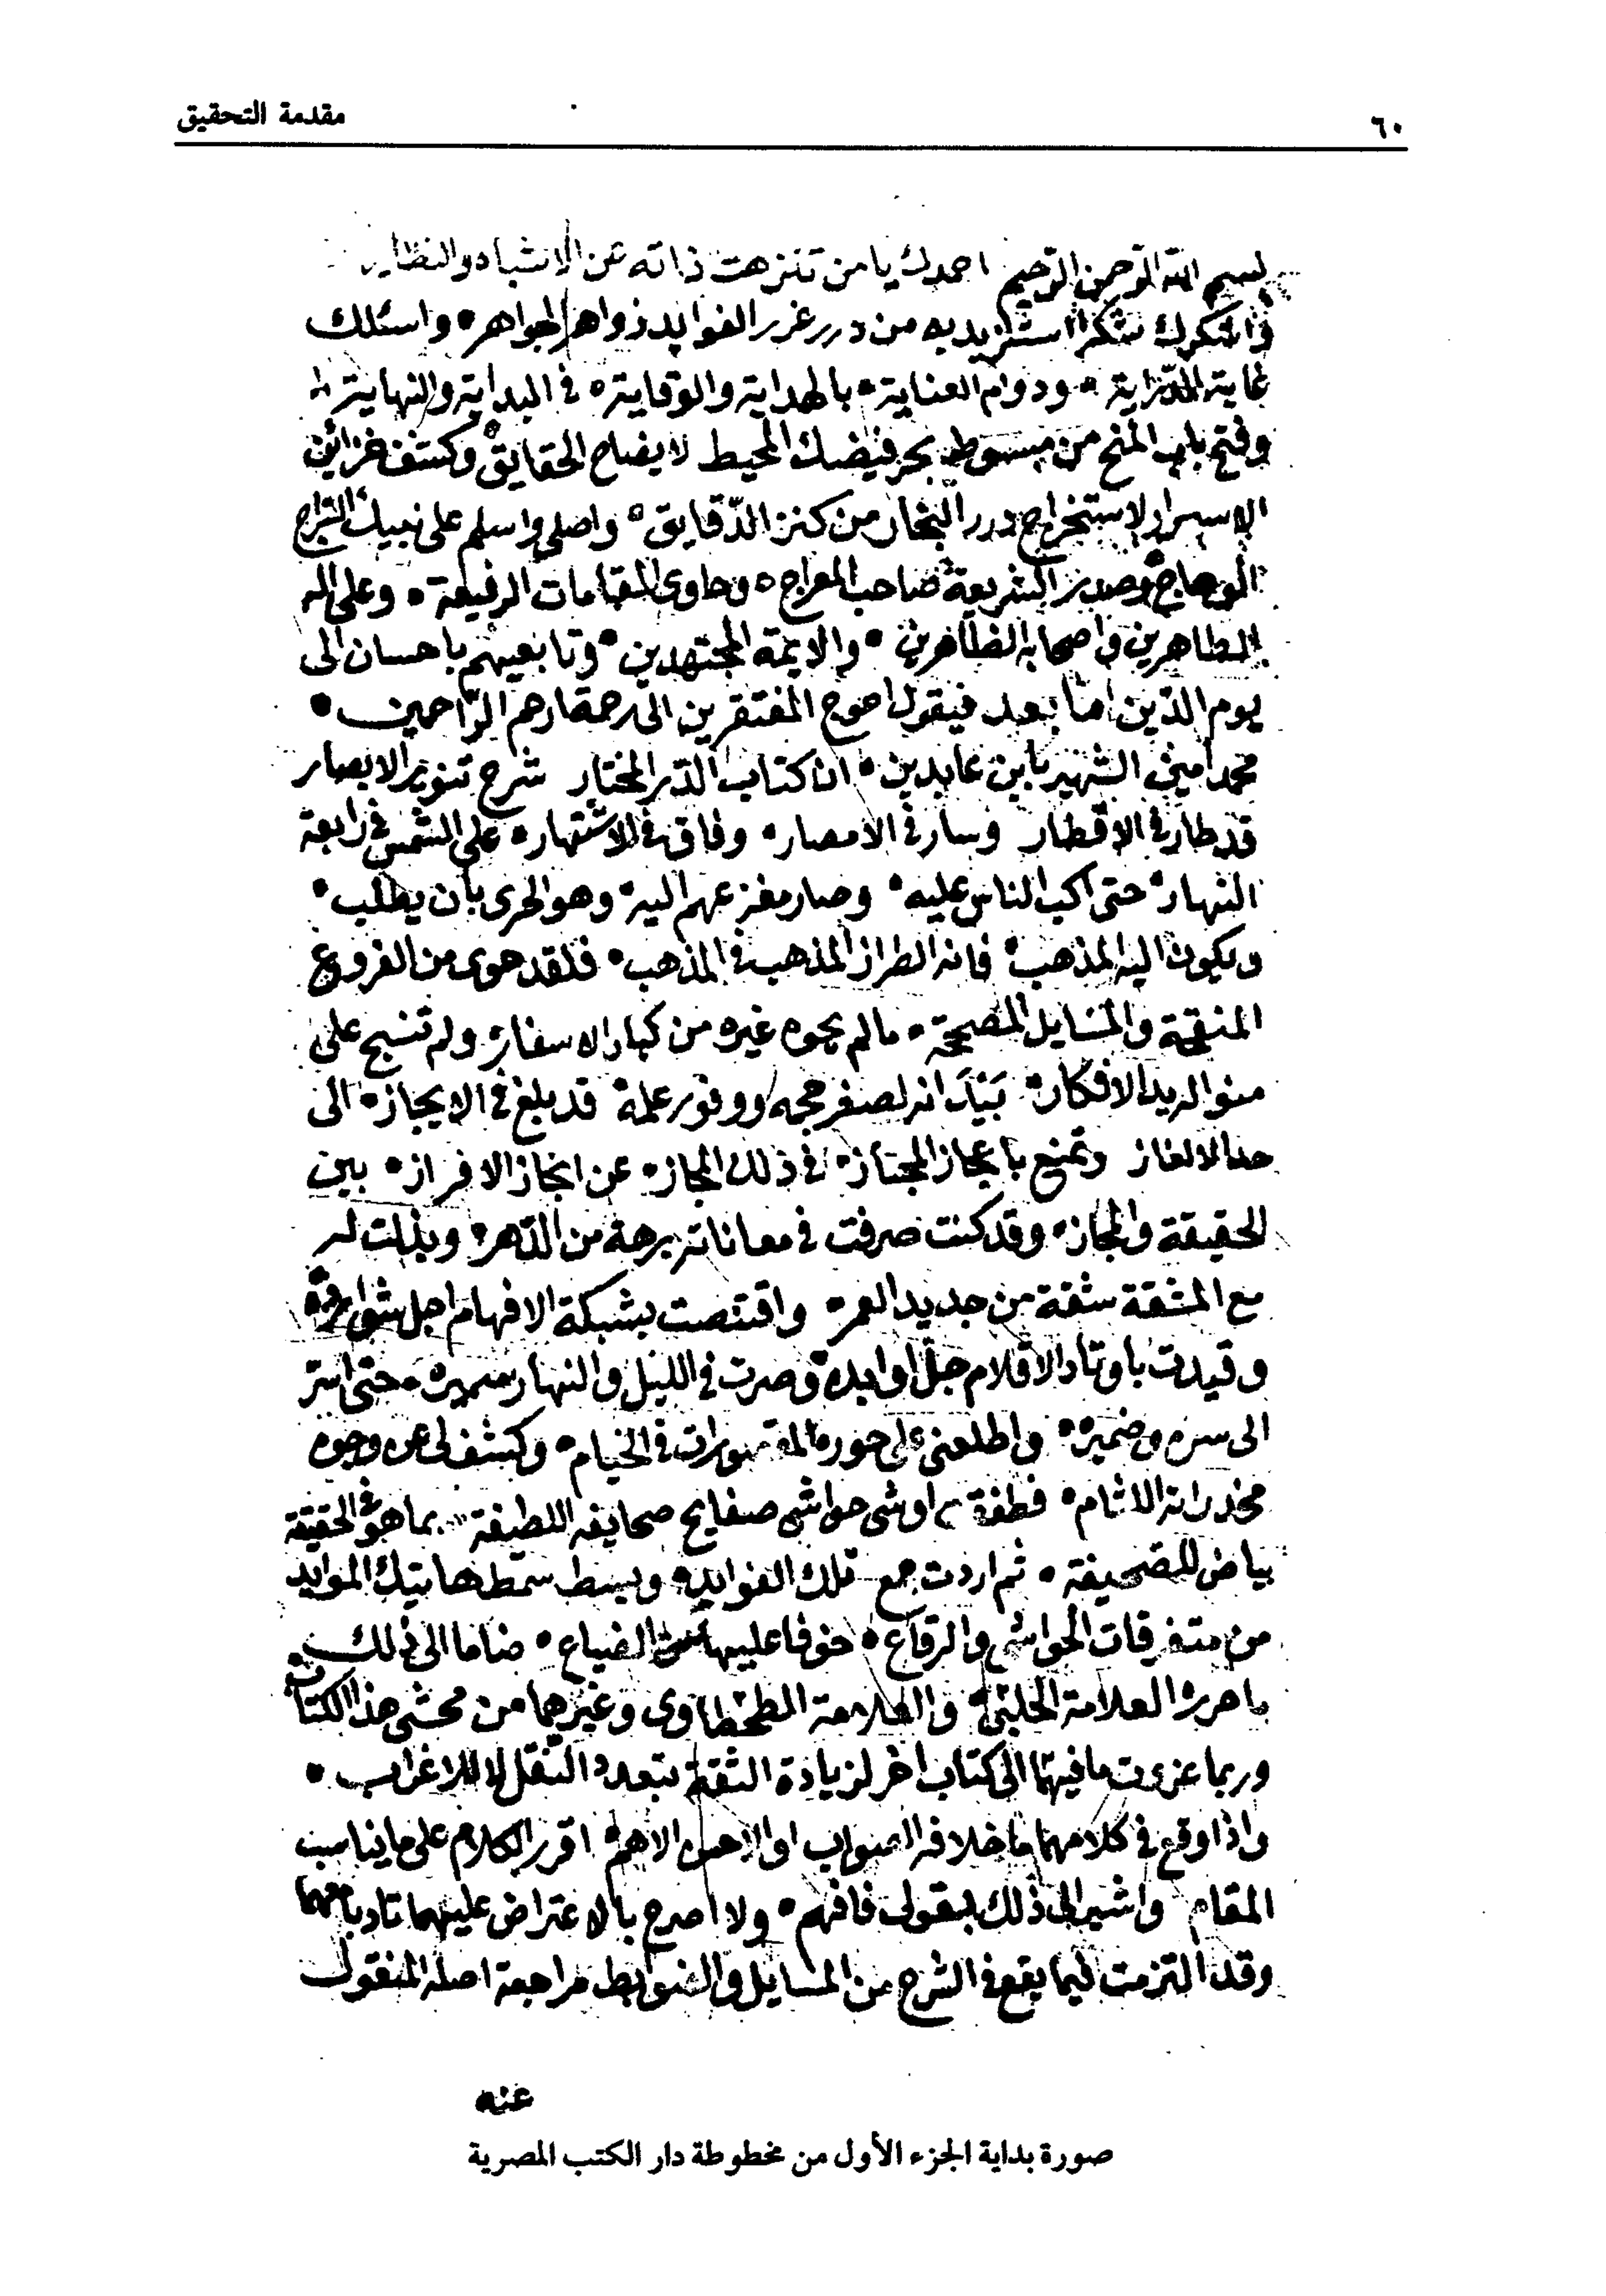 ٦٠ مقدمة التحقيق
بسم الله الرحمن الرحيم احمدك يا من تنزهت ذاته عن الاشباه والنظاير
واشكرك شكرا استزيد به من درر غرر الفوايد زواهر الجواهر • واسئلك
غاية الدراية • ودوام العناية • بالهداية والوقاية • في البداية والنهاية •
وفتح باب المنح من مبسوط بحر فيضك المحيط لايضاح الحقايق • وكشف خزائن
الاسرار لاستخراج درر البحار من كنز الدقايق • واصلي واسلم على نبيك السراج
الوهاج • وصدر الشريعة صاحب المعراج • وحاوى المقامات الرفيعة • وعلى اله
الطاهرين واصحابه الظاهرين • والايمة المجتهدين • وتابعيهم باحسان الى
يوم الدين اما بعد فيقول احوج المفتقرين الى رحمة ارحم الراحمين •
محمد امين الشهير بابن عابدين • ان كتاب الدر المختار شرح تنوير الابصار
قد طار في الاقطار وسار في الامصار • وفاق في الاشتهار • على الشمس في رابعة
النهار • حتى اكب الناس عليه • وصار مفزعهم اليه • وهو الحرى بان يطلب •
ويكون اليه المذهب • فانه الطراز المذهب في المذهب • فلقد حوى من الفروع
المنقحة والمسايل المصححة • مالم يحوه غيره من كبار الاسفار • ولم تنسج على
منواله يد الافكار • بيد انه لصغر حجمه ووفور علمه • قد بلغ في الايجاز • الى
حد الالغاز وتمنع باعجاز المجتاز • في ذلك المجاز • عن انجاز الافراز • بين
الحقيقة والمجاز • وقد كنت صرفت في معاناته برهة من الدهر • وبذلت له
مع المشقة شقة من جديد العمر • واقتنصت بشبكة الافهام اجل شوارده •
وقيدت باوتاد الاقلام جل اوابده • وصرت في الليل والنهار سميره • حتى اسر
الى سره وضميره • واطلعني على حوره المقصورات في الخيام • وكشف لي عن وجوه
مخدراته اللثام • فطفقت اوشى حواشى صفايح صحايفه اللطيفة • بما هو في الحقيقة
بياض للصحيفة • ثم اردت جمع تلك الفوايد • وبسط سمط هاتيك الموايد
من متفرقات الحواشى والرقاع • خوفا عليها من الضياع • ضاما الى ذلك
ما حرره العلامة الحلبي • والعلامة الطحطاوى وغيرهما من محشى هذا الكتاب •
وربما عزوت ما فيهما الى كتاب اخر لزيادة الثقة بتعدد النقل لا للاغراب •
واذا وقع في كلامهما ما خلافه الصواب او الاحسن الاهم • اقرر الكلام على ما يناسب
المقام واشير الى ذلك بقولى فافهم • ولا اصرح بالاعتراض عليهما تادبا معهما
وقد التزمت فيما يقع في الشرح من المسايل والضوابط مراجعة اصله المنقول
عنه
صورة بداية الجزء الأول من مخطوطة دار الكتب المصرية